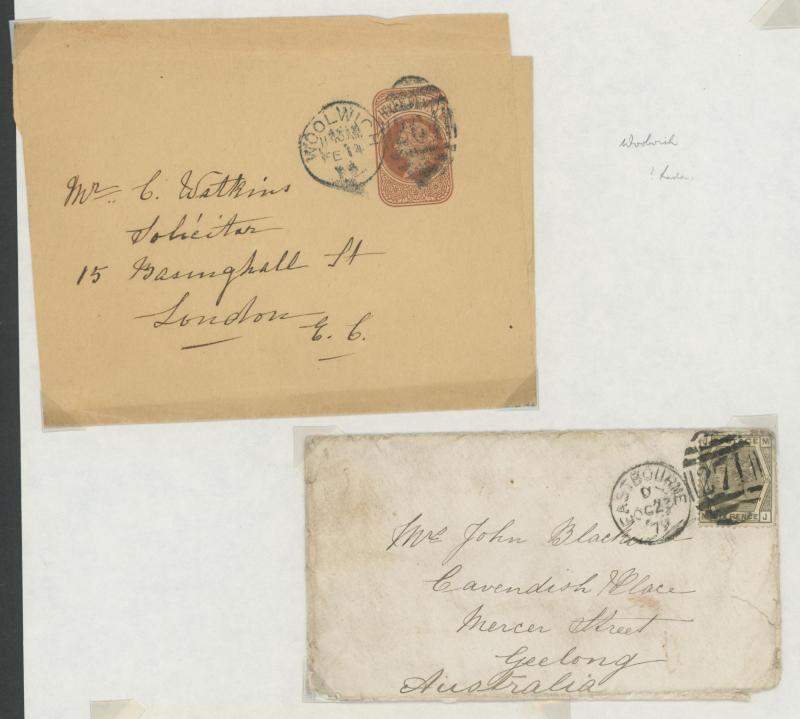 WOOLWICH
FE 14
Mr. C. Watkins
Solicitor
15 Basinghall St
London
E. C.
Woolwich
EASTBOURNE
D
OC 2
79
271
M
PENCE J
Mr John
Cavendish Place
Mercer Street
Geelong
Australia